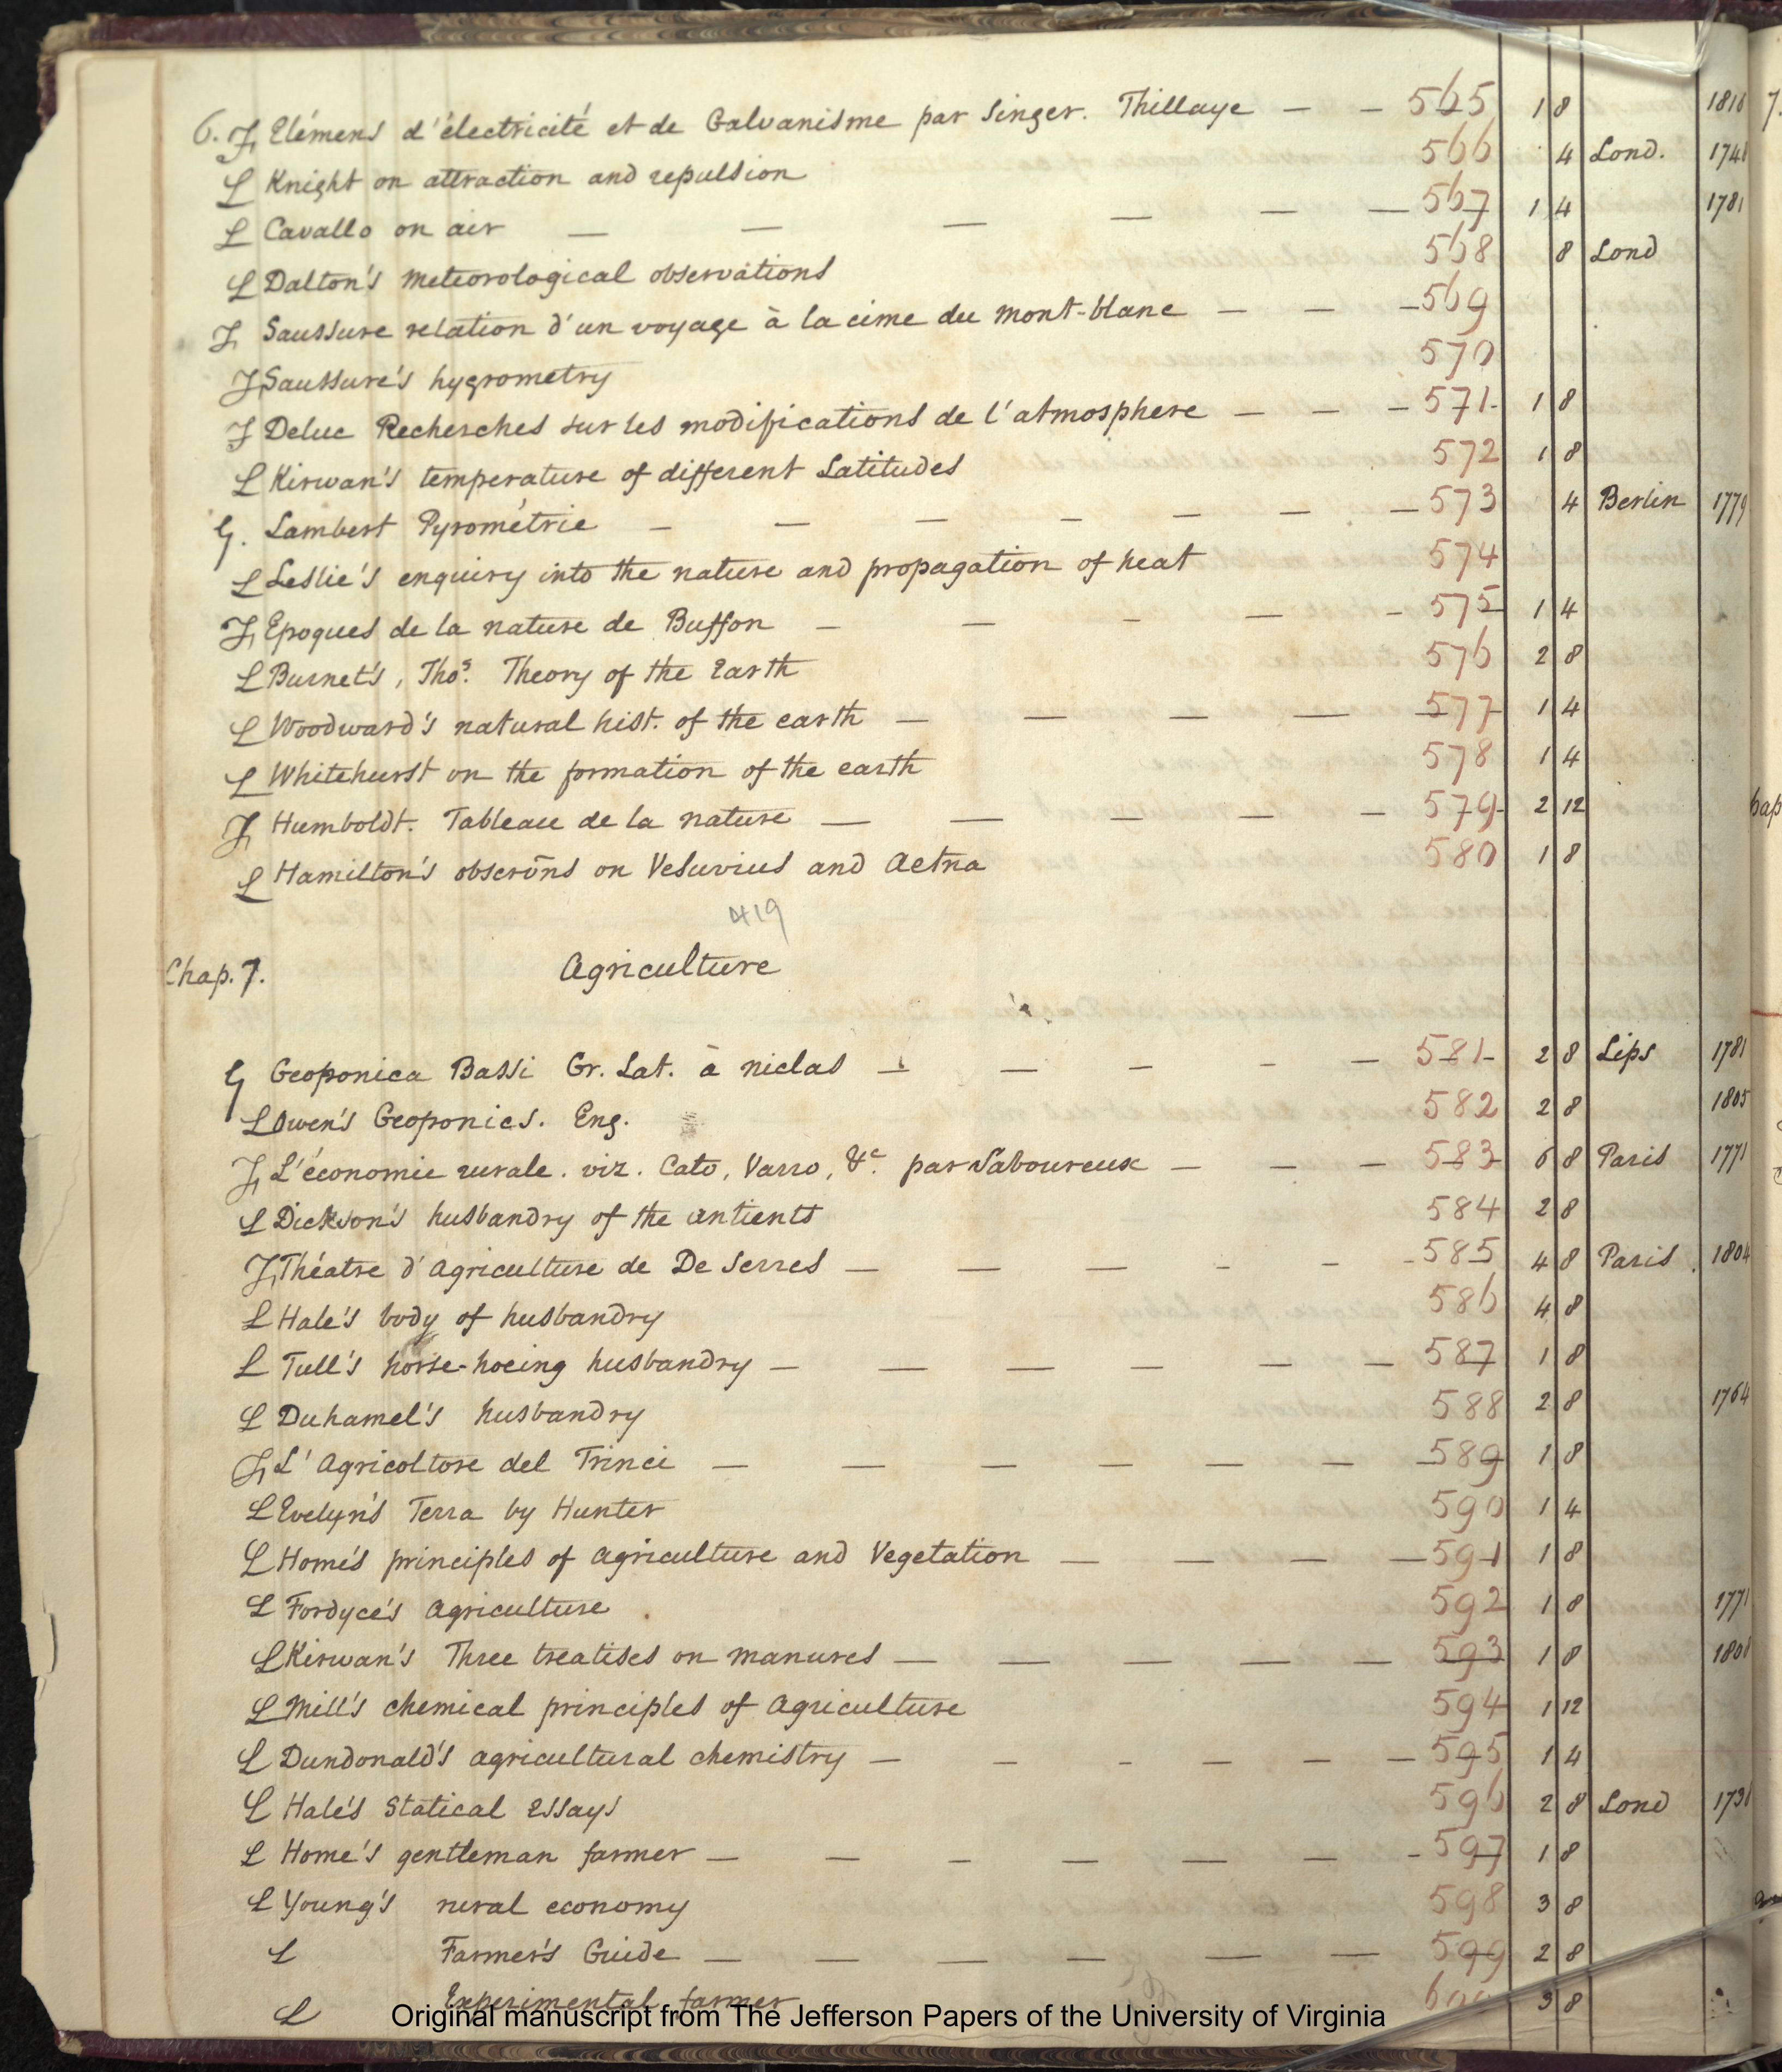 6. F Elémens d'électricité et de Galvanisme par Singer. Thillaye — — 565 1 8 1816 7.
L Knight on attraction and repulsion 566 4 Lond. 174
L Cavallo on air — — — — — — 567 1 4 1781
L Dalton's meteorological observations 568 8 Lond
F Saussure relation d'un voyage à la cime du mont-blanc — — — 569
F Saussure's hygrometry 570
F Deluc Recherches sur les modifications de l'atmosphere — — — 571 1 8
L Kirwan's temperature of different Latitudes 572 1 8
G. Lambert Pyrométrie — — — — — — — 573 4 Berlin 1779
L Leslie's enquiry into the nature and propagation of heat 574
F Epoques de la nature de Buffon — — — — — 575 1 4
L Burnet's, Thos. Theory of the Earth 576 2 8
L Woodward's natural hist. of the earth — — — — — 577 1 4
L Whitehurst on the formation of the earth 578 1 4
F Humboldt. Tableau de la nature — — — — — 579 2 12
L Hamilton's observn̄s on Vesuvius and Aetna 580 1 8
419
Chap. 7. Agriculture
G Geoponica Bassi Gr. Lat. à niclas — — — — — 581 2 8 Lips 1781
L Owen's Geoponics. Eng. 582 2 8 1805
F L'économie rurale. viz. Cato, Varro, &c. par Saboureux — — — 583 6 8 Paris 1771
L Dickson's husbandry of the antients 584 2 8
F Théatre d'Agriculture de De Serres — — — — — — 585 4 8 Paris. 1804
L Hale's body of husbandry 586 4 8
L Tull's horse-hoeing husbandry — — — — — — 587 1 8
L Duhamel's husbandry 588 2 8 1764
F L'Agricoltore del Trinci — — — — — — — 589 1 8
L Evelyn's Terra by Hunter 590 1 4
L Home's principles of agriculture and Vegetation — — — — 591 1 8
L Fordyce's Agriculture 592 1 8 1771
L Kirwan's Three treatises on manures — — — — — 593 1 8 180
L Mill's chemical principles of Agriculture 594 1 12
L Dundonald's agricultural chemistry — — — — — — 595 1 4
L Hale's Statical Essays 596 2 8 Lond 173
L Home's gentleman farmer — — — — — — — 597 1 8
L Young's rural economy 598 3 8
L Farmer's Guide — — — — — — 599 2 8
L Experimental farmer 600 3 8
Original manuscript from The Jefferson Papers of the University of Virginia